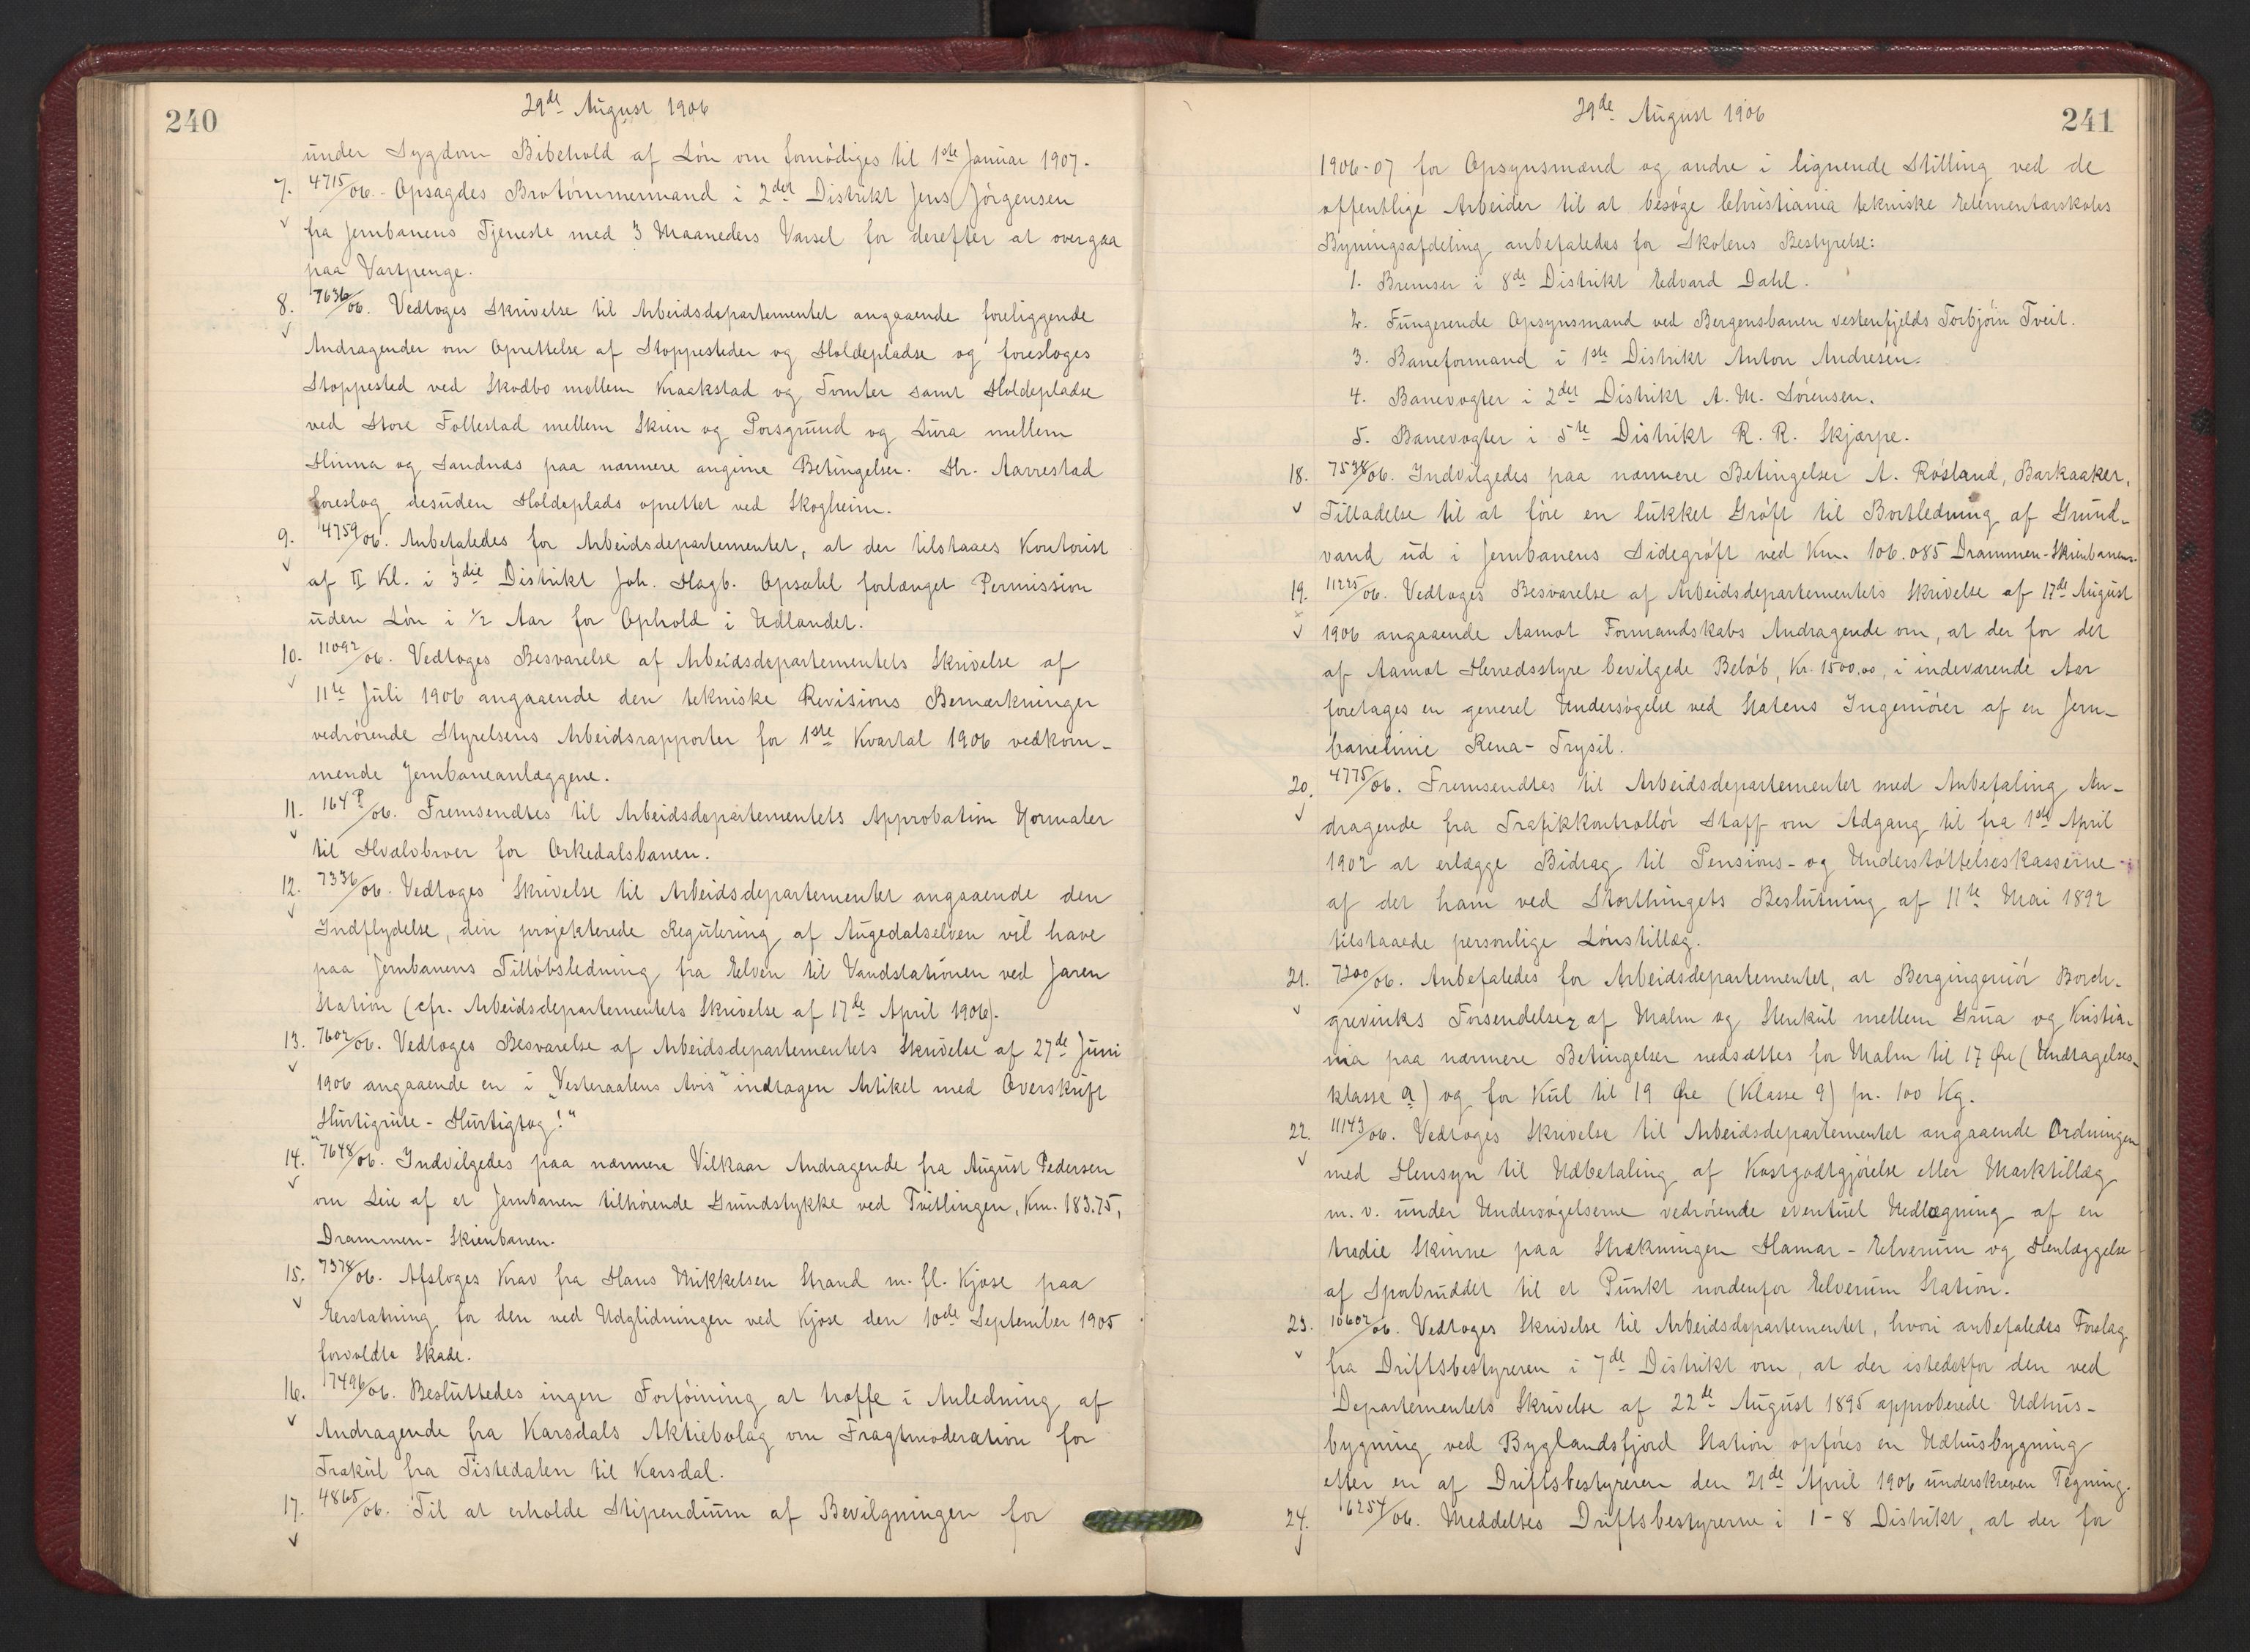 240
29de August 1906
under Sygdom Bibehold af Løn om fornødiges til 1ste Januar 1907.
7. 4715/06. Opsagdes Brotømmermand i 2det Distrikt Jens Jörgensen
fra Jernbanens Tjeneste med 3 Maaneders Varsel for derefter at overgaa
paa Vartpenge.
8. 7636/06. Vedtoges Skrivelse til Arbeidsdepartementet angaaende foreliggende
Andragender om Oprettelse af Stoppesteder og Holdepladse og foresloges
Stoppested ved Skodbo mellem Kraakstad og Tomter samt Holdepladse
ved Store Follestad mellem Skien og Porsgrund og Lura mellem
Hinna og Sandnæs paa nærmere angivne Betingelser. Hr. Aarrestad
foreslog desuden Holdeplads oprettet ved Skogheim.
9. 4759/06. Anbefaledes for Arbeidsdepartementet, at der tilstaaes Kontorist
af II Kl. i 3die Distrikt Joh. Hagb. Opsahl forlænget Permission
uden Løn i 1/2 Aar for Ophold i Udlandet.
10. 11092/06. Vedtoges Besvarelse af Arbeidsdepartementets Skrivelse af
11te Juli 1906 angaaende den tekniske Revisions Bemærkninger
vedrørende Styrelsens Arbeidsrapporter for 1ste Kvartal 1906 vedkom-
mende Jernbaneanlæggene.
11. 164P/06. Fremsendtes til Arbeidsdepartementets Approbation Normaler
til Hvælvbroer for Orkedalsbanen.
12. 7336/06. Vedtoges Skrivelse til Arbeidsdepartementet angaaende den
Indflydelse, den projekterede Regulering af Augedalselven vil have
paa Jernbanens Tilløbsledning fra Elven til Vandstationen ved Jaren
Station (cfr. Arbeidsdepartementets Skrivelse af 17de April 1906).
13. 7602/06. Vedtoges Besvarelse af Arbeidsdepartementets Skrivelse af 27de Juni
1906 angaaende en i „Vesteraalens Avis" indtagen Artikel med Overskrift
„Hurtigrute - Hurtigtog!"
14. 7648/06. Indvilgedes paa nærmere Vilkaar Andragende fra August Pedersen
om Leie af et Jernbanen tilhørende Grundstykke ved Tvitlingen, Km. 183.75,
Drammen - Skienbanen.
15. 7378/06. Afsloges Krav fra Hans Mikkelsen Strand m. fl. Kjose paa
Erstatning for den ved Udglidningen ved Kjose den 10de September 1905
forvoldte Skade.
16. 17496/06. Besluttedes ingen Forføining at træffe i Anledning af
Andragende fra Karsdals Aktiebolag om Fragtmoderation for
Trækul fra Tistedalen til Karsdal.
17. 4865/06. Til at erholde Stipendium af Bevilgningen for
29de August 1906
241
1906-07 for Opsynsmænd og andre i lignende Stilling ved de
offentlige Arbeider til at besøge Christiania tekniske Elementærskoles
Byningsafdeling anbefaledes for Skolens Bestyrelse:
1. Bremser i 8de Distrikt Edvard Dahl.
2. Fungerende Opsynsmand ved Bergensbanen vestenfjelds Torbjørn Tveit.
3. Baneformand i 1ste Distrikt Anton Andresen.
4. Banevogter i 2det Distrikt A. M. Sørensen.
5. Banevogter i 5te Distrikt R. R. Skjærpe.
18. 7538/06. Indvilgedes paa nærmere Betingelser A. Røsland, Barkaaker,
Tilladelse til at føre en lukket Grøft til Bortledning af Grund-
vand ud i Jernbanens Sidegrøft ved Km. 106.085 Drammen-Skienbanen.
19. 11225/06. Vedtoges Besvarelse af Arbeidsdepartementets Skrivelse af 17de August
1906 angaaende Aamot Formandskabs Andragende om, at der for det
af Aamot Herredsstyre bevilgede Beløb, Kr. 1500,00, i indeværende Aar
foretages en generel Undersøgelse ved Statens Ingeniører af en Jern-
banelinie Rena - Trysil.
20. 4775/06. Fremsendtes til Arbeidsdepartementet med Anbefaling An-
dragende fra Trafikkontrollør Staff om Adgang til fra 1ste April
1902 at erlægge Bidrag til Pensions- og Understøttelseskasserne
af det ham ved Storthingets Beslutning af 11te Mai 1892
tilstaaede personlige Lønstillæg.
21. 7200/06. Anbefaledes for Arbeidsdepartementet, at Bergingeniør Borch-
grevinks Forsendelser af Malm og Stenkul mellem Grua og Kristia-
nia paa nærmere Betingelser nedsættes for Malm til 17 Øre (Undtagelses-
klasse a) og for Kul til 19 Øre (Klasse 9) pr. 100 Kg.
22. 11143/06. Vedtoges Skrivelse til Arbeidsdepartementet angaaende Ordningen
med Hensyn til Udbetaling af Kostgodtgjørelse eller Marktillæg
m. v. under Undersøgelserne vedrørende eventuel Nedlægning af en
tredie Skinne paa Strækningen Hamar - Elverum og Henlæggelse
af Sporbruddet til et Punkt nordenfor Elverum Station.
23. 10602/06. Vedtoges Skrivelse til Arbeidsdepartementet, hvori anbefaledes Forslag
fra Driftsbestyreren i 7de Distrikt om, at der istedetfor den ved
Departementets Skrivelse af 22de August 1895 approberede Udhus-
bygning ved Byglandsfjord Station opføres en Udhusbygning
efter en af Driftsbestyreren den 21de April 1906 underskreven Tegning.
24. 16254/06. Meddeltes Driftsbestyrerne i 1-8 Distrikt, at der for